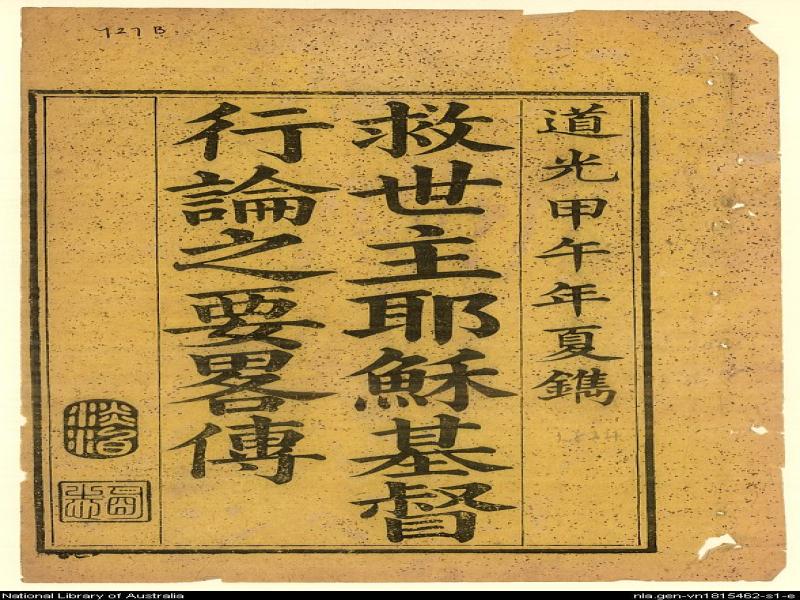 727 B
道光甲午年夏鐫
救世主耶穌基督
行論之要畧傳
1834
National Library of Australia
nla.gen-vn1815462-s1-e